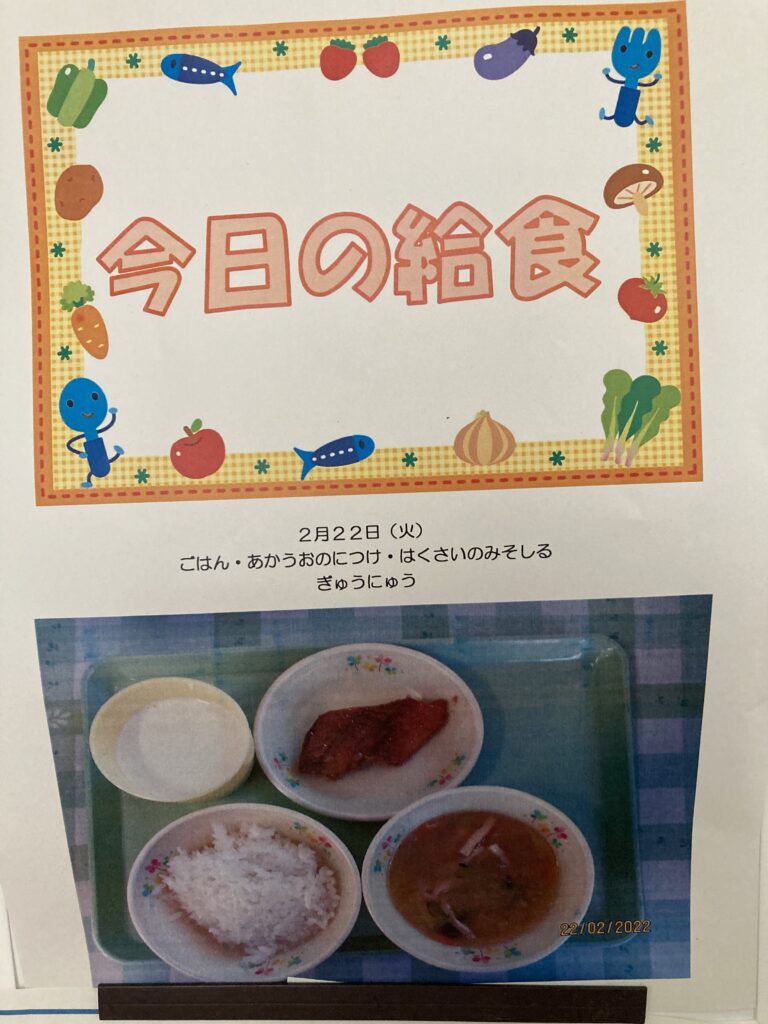 今日の給食
２月２２日（火）
ごはん・あかうおのにつけ・はくさいのみそしる
ぎゅうにゅう
22/02/2022